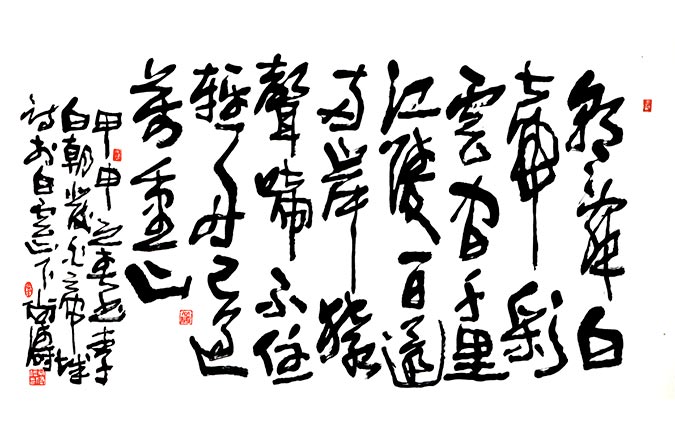 朝辭白
帝彩
雲間千里
江陵一日還
兩岸猿
聲啼不住
輕舟已過
萬重山
甲申之春書李
白朝發帝城
詩於白雲下